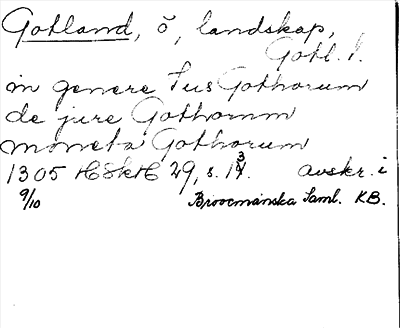 Gotland, ö, landskap,
Gotl. l.
in genere Jus Gothorum
de jure Gothorum
moneta Gothorum
1305 HSkH 29, s. 13 avskr. i
9/10 Broocmanska Saml. KB.